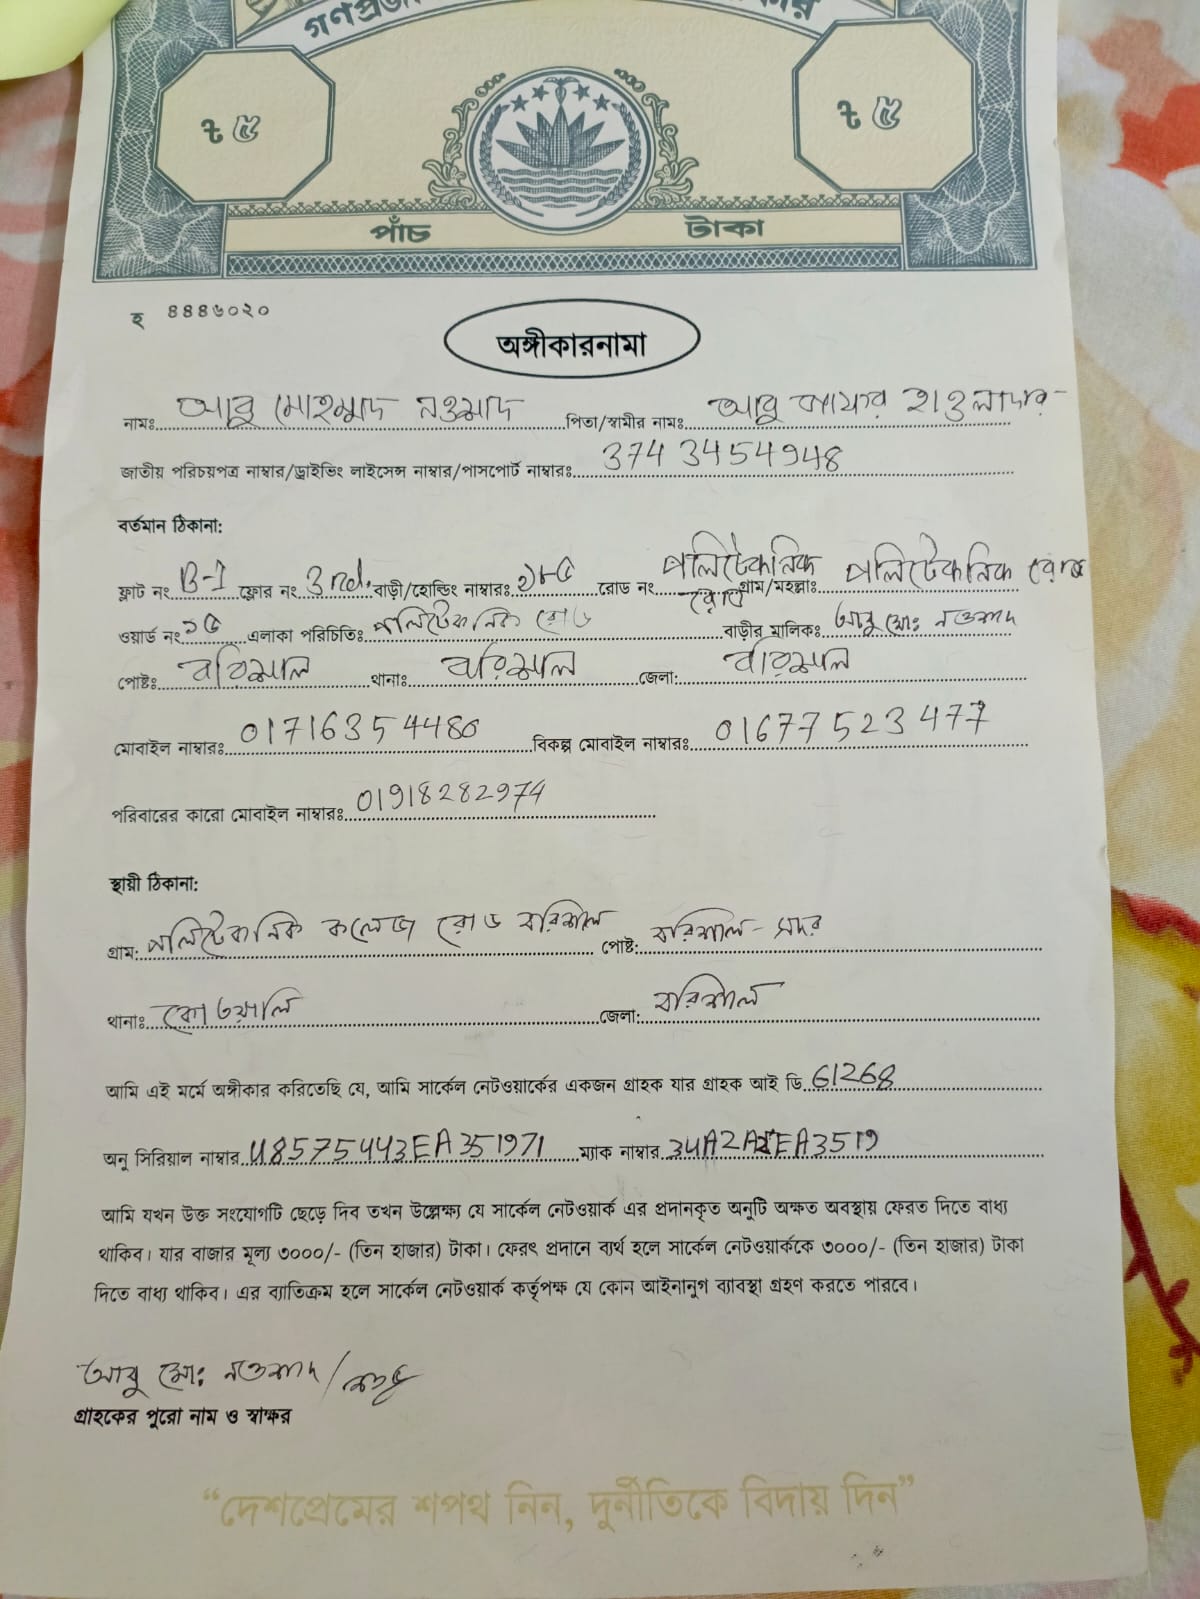 ৳ ৫
৳ ৫
পাঁচ টাকা
হ ৪৪৪৬০২০
অঙ্গীকারনামা
নামঃ আবু মোহম্মাদ নওশাদ পিতা/স্বামীর নামঃ আবু জাফর হাওলাদার
জাতীয় পরিচয়পত্র নাম্বার/ড্রাইভিং লাইসেন্স নাম্বার/পাসপোর্ট নাম্বারঃ 374 3454948
বর্তমান ঠিকানা:
ফ্লাট নং B-1 ফ্লোর নং 3rd. বাড়ী/হোল্ডিং নাম্বারঃ রোড নং পলিটেকনিক রোড গ্রাম/মহল্লাঃ পলিটেকনিক রোড
ওয়ার্ড নং এলাকা পরিচিতিঃ পলিটেকনিক রোড বাড়ীর মালিকঃ আবু মোঃ নওশাদ
পোষ্টঃ বরিশাল থানাঃ বরিশাল জেলা: বরিশাল
মোবাইল নাম্বারঃ 01716354480 বিকল্প মোবাইল নাম্বারঃ 01677523477
পরিবারের কারো মোবাইল নাম্বারঃ 01918282974
স্থায়ী ঠিকানা:
গ্রাম: পলিটেকনিক কলেজ রোড বরিশাল পোষ্ট: বরিশাল-সদর
থানাঃ কোতয়ালি জেলা: বরিশাল
আমি এই মর্মে অঙ্গীকার করিতেছি যে, আমি সার্কেল নেটওয়ার্কের একজন গ্রাহক যার গ্রাহক আই ডি 61268
অনু সিরিয়াল নাম্বার 48575443EA351971 ম্যাক নাম্বার
আমি যখন উক্ত সংযোগটি ছেড়ে দিব তখন উল্লেক্ষ্য যে সার্কেল নেটওয়ার্ক এর প্রদানকৃত অনুটি অক্ষত অবস্থায় ফেরত দিতে বাধ্য
থাকিব। যার বাজার মূল্য ৩০০০/- (তিন হাজার) টাকা। ফেরৎ প্রদানে ব্যর্থ হলে সার্কেল নেটওয়ার্ককে ৩০০০/- (তিন হাজার) টাকা
দিতে বাধ্য থাকিব। এর ব্যাতিক্রম হলে সার্কেল নেটওয়ার্ক কর্তৃপক্ষ যে কোন আইনানুগ ব্যাবস্থা গ্রহণ করতে পারবে।
আবু মোঃ নওশাদ/
গ্রাহকের পুরো নাম ও স্বাক্ষর
“দেশপ্রেমের শপথ নিন, দুর্নীতিকে বিদায় দিন”